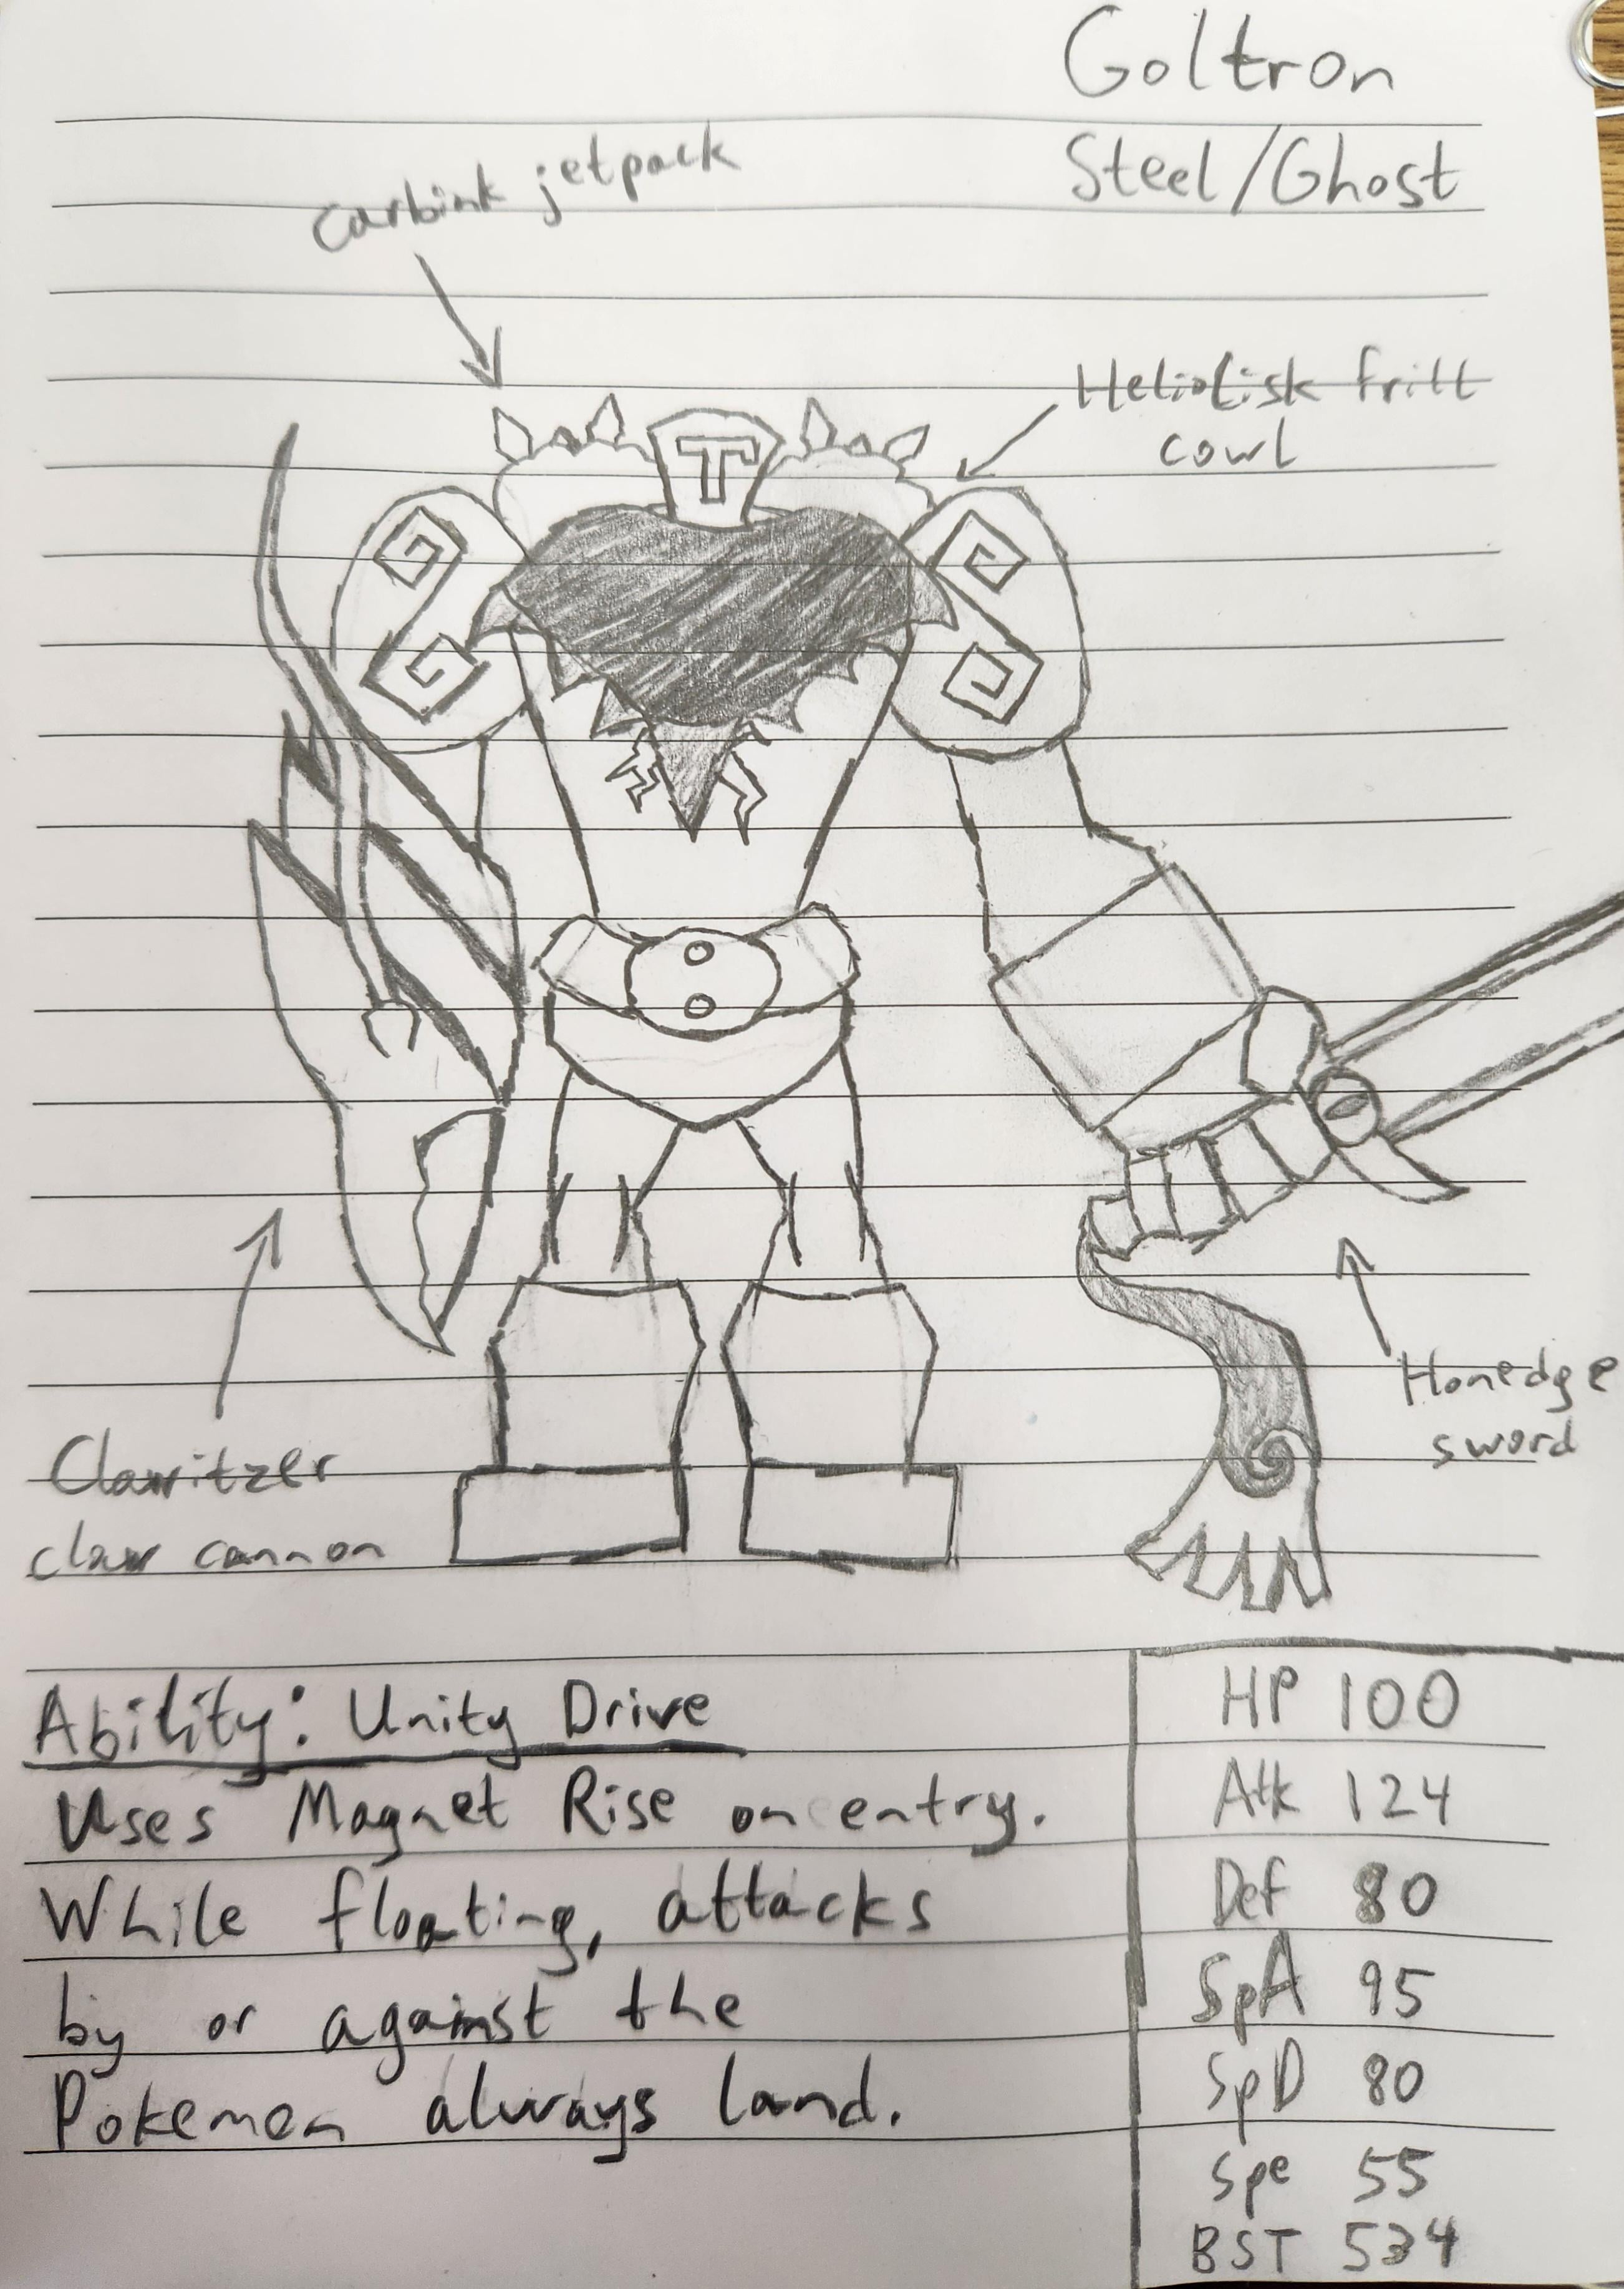 Goltron
Steel/Ghost
Carbink jetpack
Heliolisk frill
cowl
T
Honedge
sword
Clawitzer
claw cannon
Ability: Unity Drive
Uses Magnet Rise on entry.
While floating, attacks
by or against the
Pokemon always land.
HP 100
Atk 124
Def 80
SpA 95
SpD 80
Spe 55
BST 534